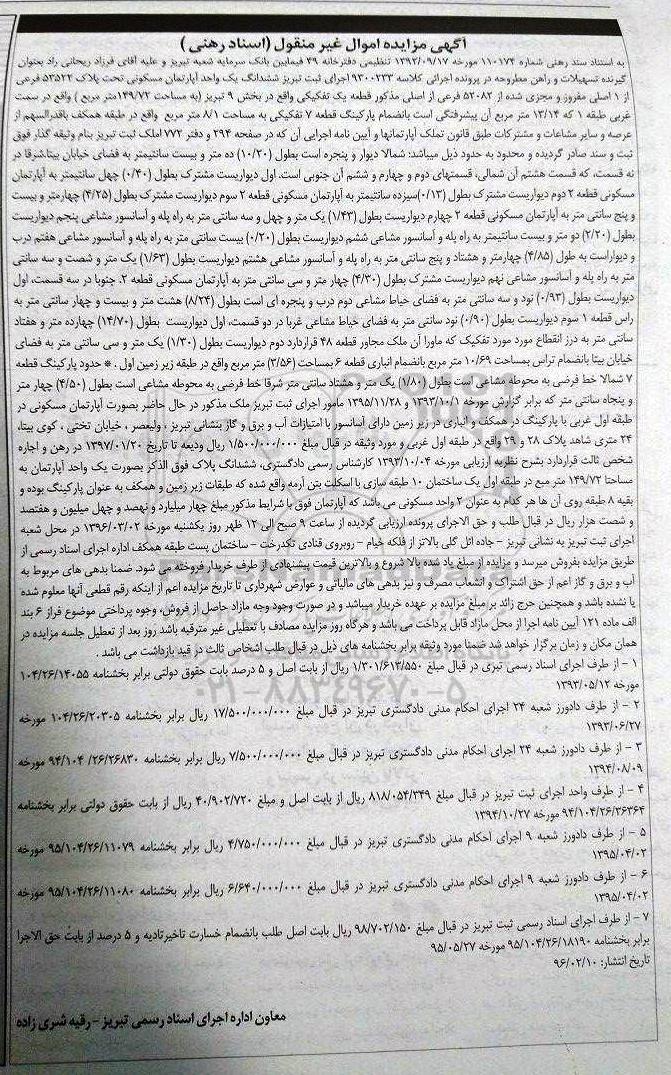 آگهی مزایده اموال غیر منقول (اسناد رهنی)
به استناد سند رهنی شماره ۱۱۰۱۷۴ مورخه ۱۳۹۲/۰۹/۱۷ تنظیمی دفترخانه ۴۹ فیمابین بانک سرمایه شعبه تبریز و علیه آقای فرزاد ریحانی راد بعنوان
گیرنده تسهیلات و راهن مطروحه در پرونده اجرائی کلاسه ۹۳۰۰۲۳۳ اجرای ثبت تبریز ششدانگ یک واحد آپارتمان مسکونی تحت پلاک ۵۳۵۲۲ فرعی
از ۱ اصلی مفروز و مجزی شده از ۵۲۰۸۲ فرعی از اصلی مذکور قطعه یک تفکیکی واقع در بخش ۹ تبریز (به مساحت ۱۴۹/۷۲ متر مربع) واقع در سمت
غربی طبقه ۱ که ۱۳/۱۴ متر مربع آن پیشرفتگی است بانضمام پارکینگ قطعه ۷ تفکیکی به مساحت ۸/۱ متر مربع واقع در طبقه همکف باقدرالسهم از
عرصه و سایر مشاعات و مشترکات طبق قانون تملک آپارتمانها و آیین نامه اجرایی آن که در صفحه ۲۹۴ و دفتر ۷۷۲ املاک ثبت تبریز بنام وثیقه گذار فوق
ثبت و سند صادر گردیده و محدود به حدود ذیل میباشد: شمالا دیوار و پنجره است بطول (۱۰/۲۰) ده متر و بیست سانتیمتر به فضای خیابان بیتا شرقا در
نه قسمت، که قسمت هشتم آن شمالی، قسمتهای دوم و چهارم و ششم آن جنوبی است. اول دیواریست مشترک بطول (۰/۴۰) چهل سانتیمتر به آپارتمان
مسکونی قطعه ۲ دوم دیواریست مشترک بطول (۰/۱۳) سیزده سانتیمتر به آپارتمان مسکونی قطعه ۲ سوم دیواریست مشترک بطول (۴/۲۵) چهار متر و بیست
و پنج سانتی متر به آپارتمان مسکونی قطعه ۲ چهارم دیواریست بطول (۱/۴۳) یک متر و چهل و سه سانتی متر به راه پله و آسانسور مشاعی پنجم دیواریست
بطول (۲/۲۰) دو متر و بیست سانتیمتر به راه پله و آسانسور مشاعی ششم دیواریست بطول (۰/۲۰) بیست سانتی متر به راه پله و آسانسور مشاعی هفتم درب
و دیواراست به طول (۴/۸۵) چهارمتر و هشتاد و پنج سانتی متر به راه پله و آسانسور مشاعی هشتم دیواریست بطول (۱/۶۳) یک متر و شصت و سه سانتی
متر به راه پله و آسانسور مشاعی نهم دیواریست مشترک بطول (۴/۳۰) چهار متر و سی سانتی متر به آپارتمان مسکونی قطعه ۲. جنوبا در سه قسمت، اول
دیواریست بطول (۰/۹۳) نود و سه سانتی متر به فضای حیاط مشاعی دوم درب و پنجره ای است بطول (۸/۲۴) هشت متر و بیست و چهار سانتی متر به
راس قطعه ۱ سوم دیواریست بطول (۰/۹۰) نود سانتی متر به فضای حیاط مشاعی غربا در دو قسمت، اول دیواریست بطول (۱۴/۷۰) چهارده متر و هفتاد
سانتی متر به درز انقطاع مورد مورد تفکیک که ماورا آن ملک مجاور قطعه ۴۸ قرارداد دوم دیواریست بطول (۱/۳۰) یک متر و سی سانتی متر به فضای
خیابان بیتا بانضمام تراس بمساحت ۱۰/۶۹ متر مربع بانضمام انباری قطعه ۶ بمساحت (۳/۵۶) متر مربع واقع در طبقه زیر زمین اول . * حدود پارکینگ قطعه
۷ شمالا خط فرضی به محوطه مشاعی است بطول (۱/۸۰) یک متر و هشتاد سانتی متر شرقا خط فرضی به محوطه مشاعی است بطول (۴/۵۰) چهار متر
و پنجاه سانتی متر که برابر گزارش مورخه ۱۳۹۳/۱۰/۱ و ۱۳۹۵/۱۱/۲۸ مامور اجرای ثبت تبریز ملک مذکور در حال حاضر بصورت آپارتمان مسکونی در
طبقه اول غربی با پارکینگ در همکف و انباری در زیر زمین دارای آسانسور با امتیازات آب و برق و گاز بنشانی تبریز ، ولیعصر ، خیابان تختی ، کوی بیتا،
۲۴ متری شاهد پلاک ۲۸ و ۲۹ واقع در طبقه اول غربی و مورد وثیقه در قبال مبلغ ۱/۵۰۰/۰۰۰/۰۰۰ ریال ودیعه تا تاریخ ۱۳۹۷/۰۱/۲۰ در رهن و اجاره
شخص ثالث قراردارد بشرح نظریه ارزیابی مورخه ۱۳۹۳/۱۰/۰۴ کارشناس رسمی دادگستری، ششدانگ پلاک فوق الذکر بصورت یک واحد آپارتمان به
مساحتا ۱۴۹/۷۲ متر مبع در طبقه اول یک ساختمان ۱۰ طبقه سازی با اسکلت بتن آرمه واقع شده که طبقات زیر زمین و همکف به عنوان پارکینگ بوده و
بقیه ۸ طبقه روی آن ها هر کدام به عنوان ۲ واحد مسکونی می باشد که آپارتمان فوق با شرایط مذکور مبلغ چهار میلیارد و نهصد و چهل میلیون و هفتصد
و شصت هزار ریال در قبال طلب و حق الاجرای پرونده ارزیابی گردیده از ساعت ۹ صبح الی ۱۲ ظهر روز یکشنبه مورخه ۱۳۹۶/۰۳/۰۲ در محل شعبه
اجرای ثبت تبریز به نشانی تبریز – جاده ائل گلی بالاتر از فلکه خیام – روبروی قنادی تکدرخت – ساختمان پست طبقه همکف اداره اجرای اسناد رسمی از
طریق مزایده بفروش میرسد و مزایده از مبلغ یاد شده بالا شروع و بالاترین قیمت پیشنهادی از طرف خریدار فروخته می شود. ضمنا بدهی های مربوط به
آب و برق و گاز اعم از حق اشتراک و انشعاب مصرف و نیز بدهی های مالیاتی و عوارض شهرداری تا تاریخ مزایده اعم از اینکه رقم قطعی آنها معلوم شده
یا نشده باشد و همچنین حرج زائد بر مبلغ مزایده بر عهده خریدار میباشد و در صورت وجود وجه مازاد حاصل از فروش، وجوه پرداختی موضوع فراز ۶ بند
الف ماده ۱۲۱ آیین نامه اجرا از محل مازاد قابل پرداخت می باشد و هرگاه روز مزایده مصادف با تعطیلی غیر مترقبه باشد روز بعد از تعطیل جلسه مزایده در
همان مکان و زمان برگزار خواهد شد ضمنا مورد وثیقه برابر بخشنامه های ذیل در قبال طلب اشخاص ثالث در قید بازداشت می باشد .
۱ - از طرف اجرای اسناد رسمی تبزی در قبال مبلغ ۱/۳۰۱/۶۱۳/۵۵۰ ریال از بابت اصل و ۵ درصد بابت حقوق دولتی برابر بخشنامه ۱۰۴/۲۶/۱۴۰۵۵
مورخه ۱۳۹۳/۰۵/۱۲
۲ - از طرف دادورز شعبه ۲۴ اجرای احکام مدنی دادگستری تبریز در قبال مبلغ ۱۷/۵۰۰/۰۰۰/۰۰۰ ریال برابر بخشنامه ۱۰۴/۲۶/۲۰۳۰۵ مورخه
۱۳۹۳/۰۶/۲۷
۳ - از طرف دادورز شعبه ۲۴ اجرای احکام مدنی دادگستری تبریز در قبال مبلغ ۷/۵۰۰/۰۰۰/۰۰۰ ریال برابر بخشنامه ۹۴/۱۰۴ /۲۶/۲۶۸۳۰ مورخه
۱۳۹۴/۰۸/۰۹
۴ - از طرف واحد اجرای ثبت تبریز در قبال مبلغ ۸۱۸/۰۵۴/۳۴۹ ریال از بابت اصل و مبلغ ۴۰/۹۰۲/۷۲۰ ریال از بابت حقوق دولتی برابر بخشنامه
۹۴/۱۰۴/۲۶/۳۶۳۶۴ مورخه ۱۳۹۴/۱۰/۲۷
۵ - از طرف دادورز شعبه ۹ اجرای احکام مدنی دادگستری تبریز در قبال مبلغ ۴/۷۵۰/۰۰۰/۰۰۰ ریال برابر بخشنامه ۹۵/۱۰۴/۲۶/۱۱۰۷۹ مورخه
۱۳۹۵/۰۴/۰۲
۶ - از طرف دادورز شعبه ۹ اجرای احکام مدنی دادگستری تبریز در قبال مبلغ ۶/۶۴۰/۰۰۰/۰۰۰ ریال برابر بخشنامه ۹۵/۱۰۴/۲۶/۱۱۰۸۰ مورخه
۱۳۹۵/۰۴/۰۲
۷ - از طرف اجرای اسناد رسمی ثبت تبریز در قبال مبلغ ۹۸/۷۰۲/۱۵۰ ریال بابت اصل طلب بانضمام خسارت تاخیرتادیه و ۵ درصد از بابت حق الاجرا
برابر بخشنامه ۹۵/۱۰۴/۲۶/۱۸۱۹۰ مورخه ۹۵/۰۵/۲۷
تاریخ انتشار: ۹۶/۰۲/۱۰
معاون اداره اجرای اسناد رسمی تبریز - رقیه شری زاده